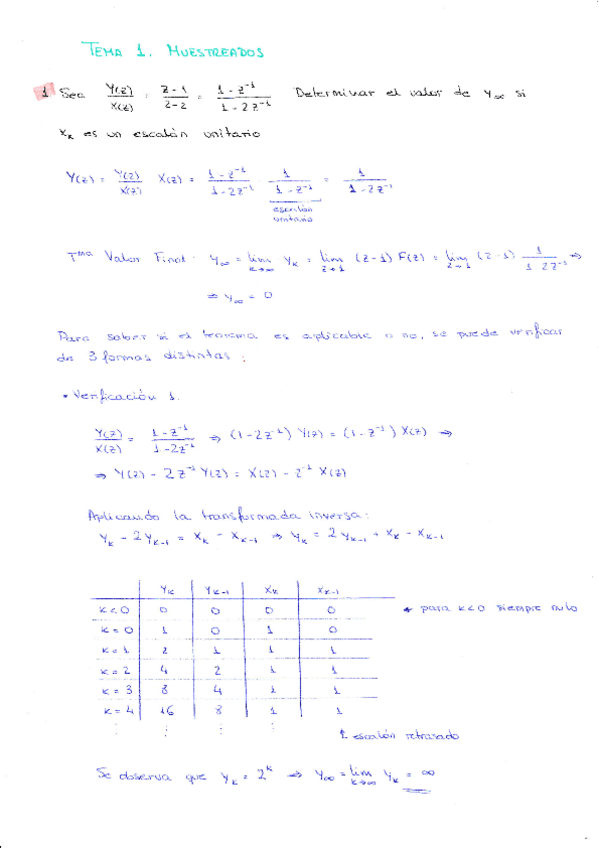 TEMA 1. MUESTREADOS
1 Sea Y(z)/X(z) = z-1/z-2 = 1-z⁻¹/1-2z⁻¹ Determinar el valor de y∞ si
xₖ es un escalón unitario
Y(z) = Y(z)/X(z) X(z) = 1-z⁻¹/1-2z⁻¹ · 1/1-z⁻¹ = 1/1-2z⁻¹
escalón
unitario
Tma Valor Final: y∞ = lim k→∞ yₖ = lim z→1 (z-1) F(z) = lim z→1 (z-1) 1/1-2z⁻¹ ⇒
⇒ y∞ = 0
Para saber si el teorema es aplicable o no, se puede verificar
de 3 formas distintas:
• Verificación 1.
Y(z)/X(z) = 1-z⁻¹/1-2z⁻¹ ⇒ (1-2z⁻¹) Y(z) = (1-z⁻¹) X(z) ⇒
⇒ Y(z) - 2z⁻¹ Y(z) = X(z) - z⁻¹ X(z)
Aplicando la transformada inversa:
yₖ - 2yₖ₋₁ = xₖ - xₖ₋₁ ⇒ yₖ = 2yₖ₋₁ + xₖ - xₖ₋₁
yₖ yₖ₋₁ xₖ xₖ₋₁
k<0 0 0 0 0 * para k<0 siempre nulo
k=0 1 0 1 0
k=1 2 1 1 1
k=2 4 2 1 1
k=3 8 4 1 1
k=4 16 8 1 1
⋮ ⋮ ⋮ ⋮
↑ escalón retrasado
Se observa que yₖ = 2ᵏ ⇒ y∞ = lim k→∞ yₖ = ∞